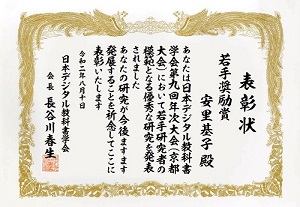 表彰状
若手奨励賞
安里基子 殿
あなたは日本デジタル教科書
学会第九回年次大会(京都
大会)において若手研究者の
模範となる優秀な研究を発表
されました
あなたの研究が今後ますます
発展することを祈念してここに
表彰いたします
令和二年八月十日
日本デジタル教科書学会
会長 長谷川春生